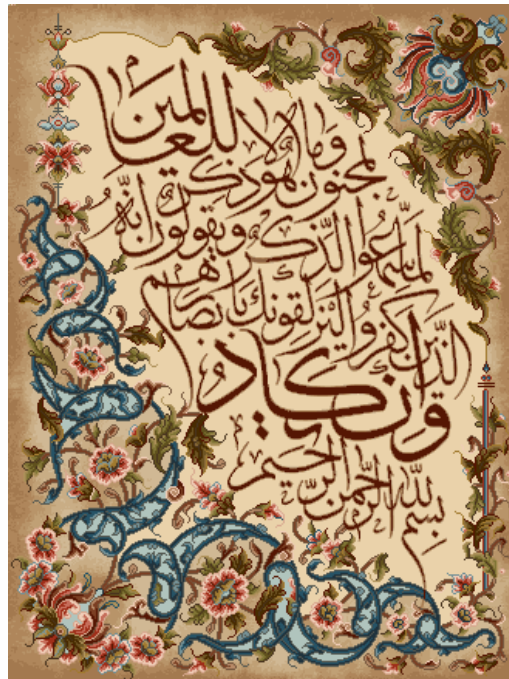 بسم الله الرحمن الرحيم
وإن يكاد
الذين كفروا ليزلقونك بأبصارهم
لما سمعوا الذكر ويقولون إنه
لمجنون وما هو إلا ذكر
للعالمين